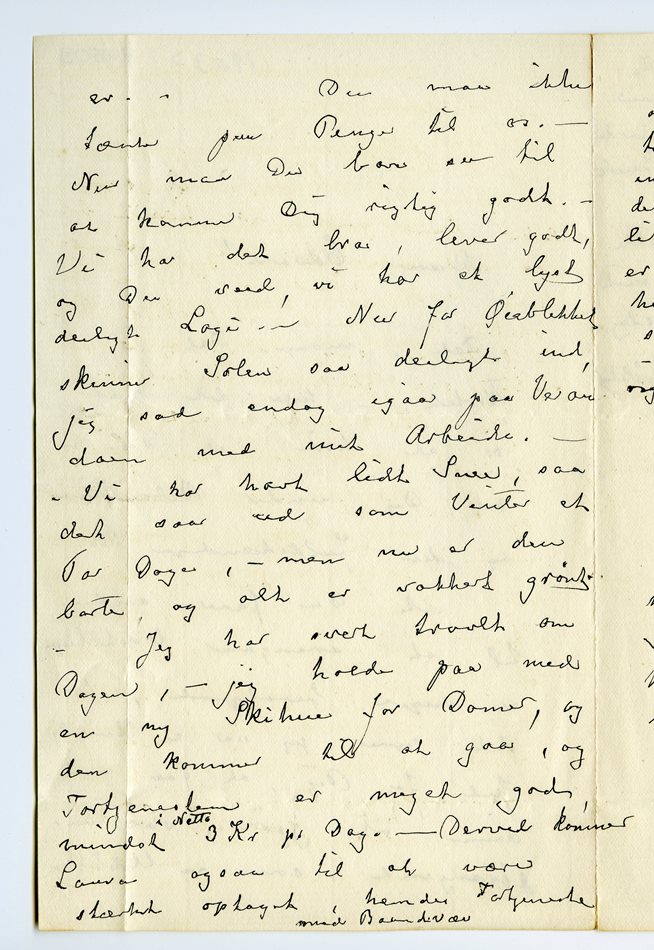 er. - - Du maa ikke
tænke paa Penge til os. —
Nu maa Du bare see til
at komme Dig rigtig godt. -
Vi har det bra, lever godt,
og Du veed, vi har et lyst
deiligt Logi. — Nu for Øieblikket
skinner Solen saa deiligt ind,
jeg sad endog igaar paa Veran
daen med mit Arbeide. —
- Vi har havt lidt Snee, saa
det saae ud som Vinter et
Par Dage, — men nu er den
borte, og alt er vakkert grønt.
- Jeg har svært travlt om
Dagen, — jeg holde paa med
en ny Skihue for Damer, og
den kommer til at gaa, og
Fortjenesten er meget god,
mindst i Netto 3 Kr pr Dag. — Derved kommer
Laura ogsaa til at være
stærkt optaget, hendes Fortjeneste
med